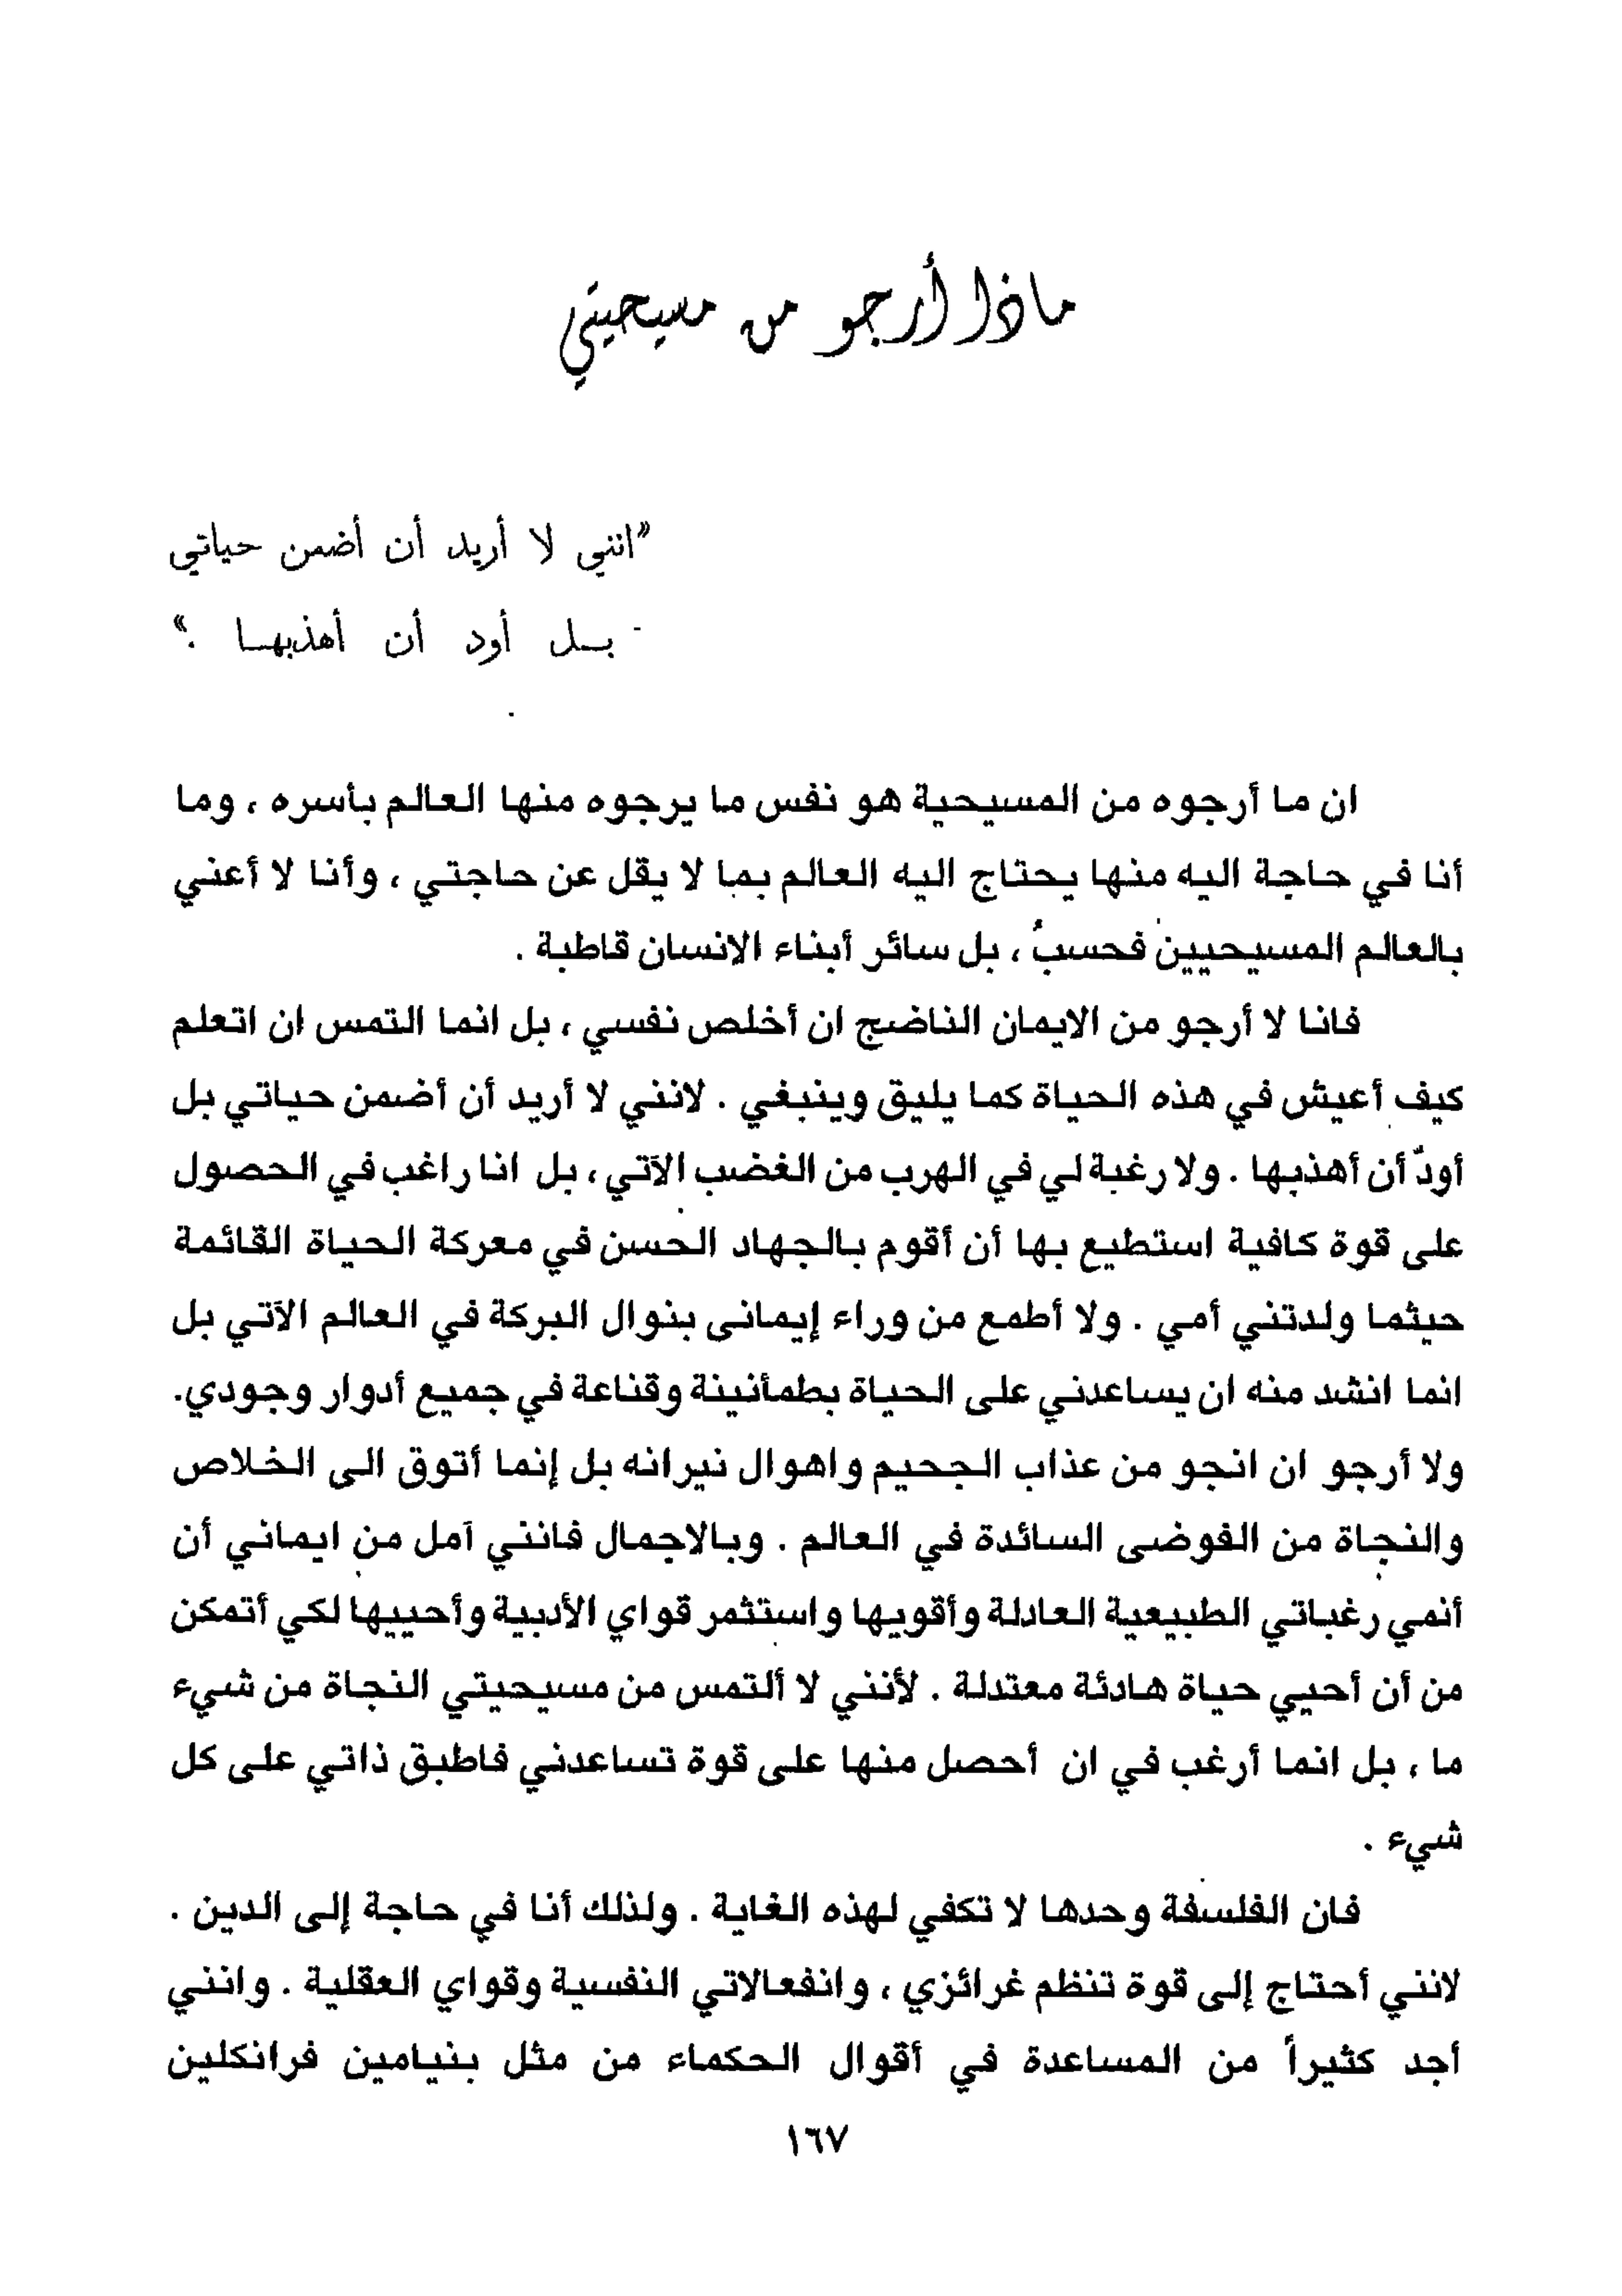 ماذا أرجو من مسيحيتي
"انني لا أريد أن أضمن حياتي
- بـل أود أن أهذبهـا ."
ان ما أرجوه من المسيحية هو نفس ما يرجوه منها العالم بأسره ، وما
أنا في حاجة اليه منها يحتاج اليه العالم بما لا يقل عن حاجتي ، وأنا لا أعني
بالعالم المسيحيين فحسبُ ، بل سائر أبناء الانسان قاطبة .
فانا لا أرجو من الايمان الناضج ان أخلص نفسي ، بل انما التمس ان اتعلم
كيف أعيش في هذه الحياة كما يليق وينبغي . لانني لا أريد أن أضمن حياتي بل
أودّ أن أهذبها . ولا رغبة لي في الهرب من الغضب الآتي ، بل انا راغب في الحصول
على قوة كافية استطيع بها أن أقوم بالجهاد الحسن في معركة الحياة القائمة
حيثما ولدتني أمي . ولا أطمع من وراء إيمانى بنوال البركة في العالم الآتي بل
انما انشد منه ان يساعدني على الحياة بطمأنينة وقناعة في جميع أدوار وجودي.
ولا أرجو ان انجو من عذاب الجحيم واهوال نيرانه بل إنما أتوق الى الخلاص
والنجاة من الفوضى السائدة في العالم . وبالاجمال فانني آمل من ايماني أن
أنمي رغباتي الطبيعية العادلة وأقويها واستثمر قواي الأدبية وأحييها لكي أتمكن
من أن أحيي حياة هادئة معتدلة . لأنني لا ألتمس من مسيحيتي النجاة من شيء
ما ، بل انما أرغب في ان أحصل منها على قوة تساعدني فاطبق ذاتي على كل
شيء .
فان الفلسفة وحدها لا تكفي لهذه الغاية . ولذلك أنا في حاجة إلى الدين .
لانني أحتاج إلى قوة تنظم غرائزي ، وانفعالاتي النفسية وقواي العقلية . وانني
أجد كثيراً من المساعدة في أقوال الحكماء من مثل بنيامين فرانكلين
١٦٧